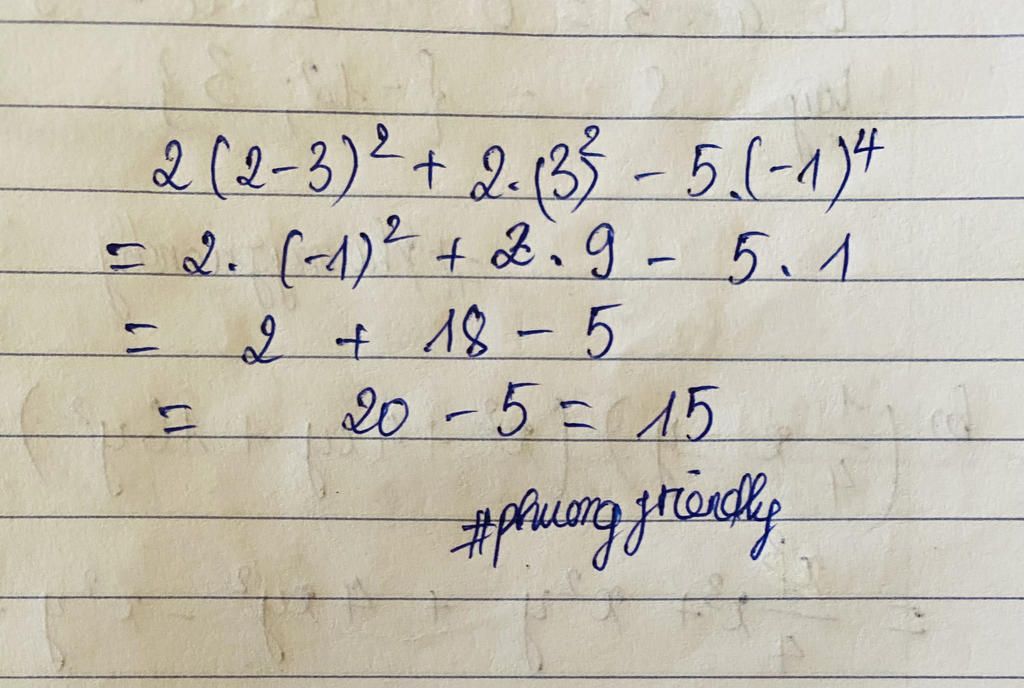 2(2-3)² + 2.(3)² - 5.(-1)⁴
= 2. (-1)² + 2.9 - 5.1
= 2 + 18 - 5
= 20 - 5 = 15
#phuong friendly